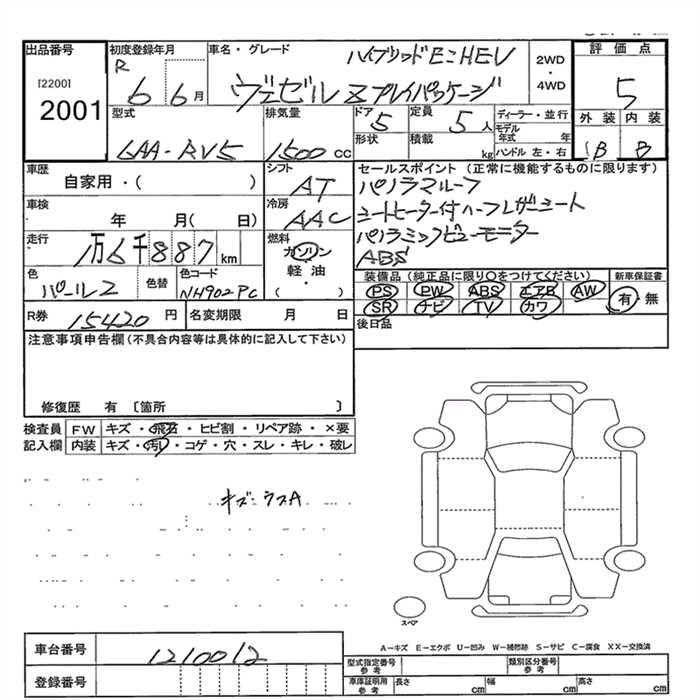 出品番号
[2200]
2001
初度登録年月
R 6 6月
車名・グレード
ハイブリッドE:HEV
ヴェゼル Zプレイパッケージ
2WD
・
4WD
評価点
5
外装 内装
B B
型式
6AA-RV5
排気量
1500 cc
ドア 5
形状
定員 5人
積載 kg
ディーラー・並行
モデル年式 年
ハンドル 左・右
車歴
自家用・( )
シフト
AT
車検
年 月( 日)
冷房
AAC
走行
万6千887km
燃料
ガソリン
・
軽油
・
( )
色
パール2
色替
色コード
NH902PC
R券 15420円
名変期限 月 日
セールスポイント(正常に機能するものに限ります)
パノラマルーフ
シートヒーター付ハーフレザーシート
パノラミックビューモニター
ABS
装備品(純正品に限り○をつけてください)
PS PW ABS エアB AW
SR ナビ TV カワ
新車保証書
有・無
後日品
注意事項申告欄(不具合内容等は具体的に記入して下さい)
修復歴 有〔箇所 〕
検査員記入欄
FW キズ・飛石・ヒビ割・リペア跡・×要
内装 キズ・汚レ・コゲ・穴・スレ・キレ・破レ
キズ・ウスA
スペア
A-キズ E-エクボ U-凹み W-補修跡 S-サビ C-腐食 XX-交換済
車台番号 1210012
登録番号
型式指定番号参考
類別区分番号参考
車庫証明用参考 長さ cm 幅 cm 高さ cm